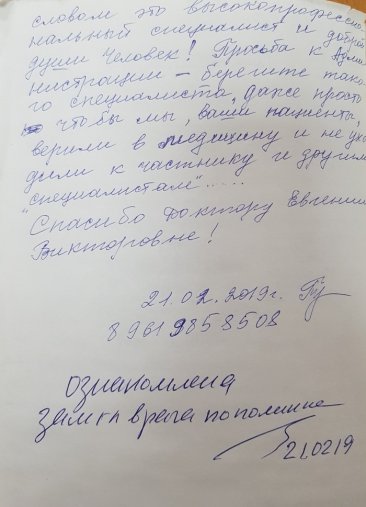 словом это высокопрофессио
нальный специалист и доброй
души Человек! Просьба к Адми
нистрации – берегите тако
го специалиста, даже просто
чтобы мы, ваши пациенты,
верили в медицину и не ухо
дили к частнику и другим
"специалистам".....
"Спасибо Доктору Евгении
Викторовне!
21.02.2019г.
8 961 985 8508
ознакомлена
зам гл врача по поликлинике
210219